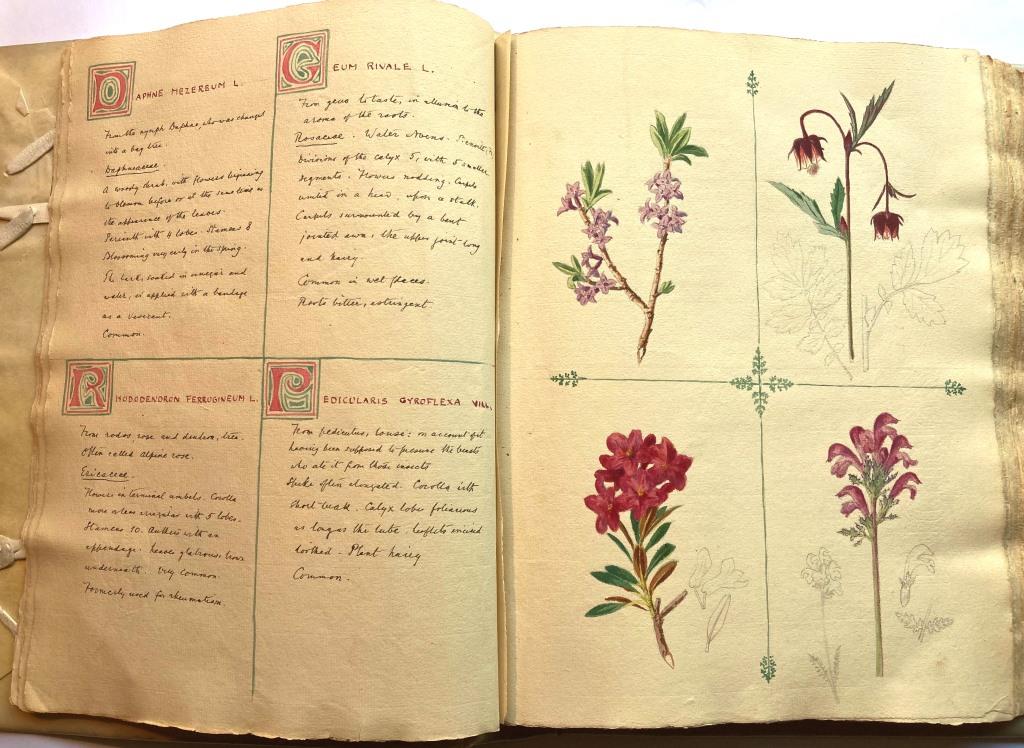 DAPHNE MEZEREUM L.
From the nymph Daphne, who was changed
into a bay tree.
Daphnaceae.
A woody shrub, with flowers beginning
to blossom before or at the same time as
the appearance of the leaves.
Perianth with 4 lobes. Stamens 8
Blossoming very early in the spring.
The bark, soaked in vinegar and
water, is applied with a bandage
as a vesicant.
Common.
GEUM RIVALE L.
From geuo to taste, in allusion to the
aroma of the roots.
Rosaceae. Water Avens.
Divisions of the calyx 5, with 5 smaller
segments. Flowers nodding. Carpels
united in a head, upon a stalk.
Carpels surmounted by a bent
jointed awn, the upper joint long
and hairy.
Common in wet places.
Roots bitter, astringent.
RHODODENDRON FERROGINEUM L.
From rodos, rose and dendron, tree.
Often called alpine rose.
Ericaceae.
Flowers in terminal umbels. Corolla
more or less irregular with 5 lobes.
Stamens 10. Anthers with an
appendage. Leaves glabrous, brown
underneath. Very common.
Formerly used for rheumatism.
PEDICULARIS GYROFLEXA VILL.
From pediculus, louse: on account of its
having been supposed to preserve the beasts
who ate it from those insects
Spike often elongated. Corolla with
short beak. Calyx lobes foliaceous
as long as the tube. Leaflets incised
toothed - Plant hairy
Common.